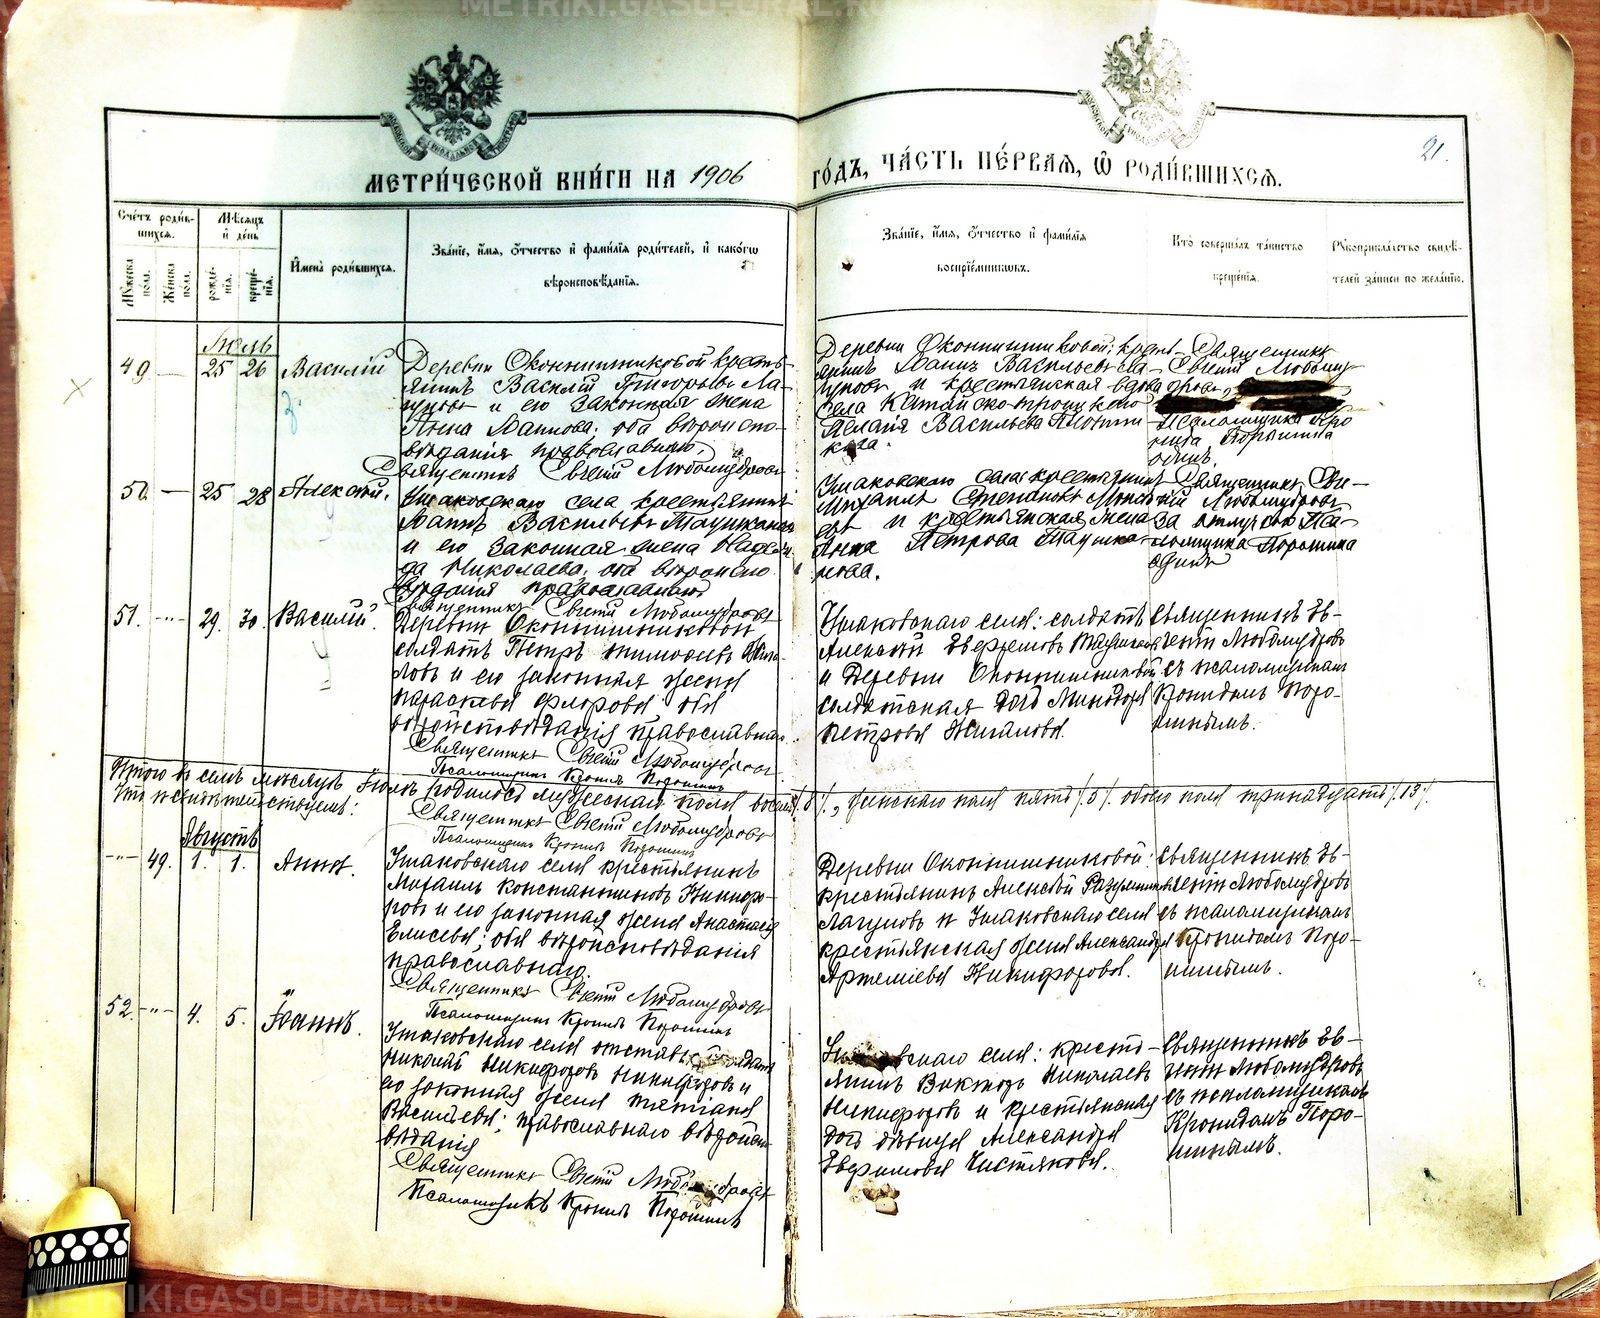 METRIKI.GASO-URAL.RU
METRIKI.GASO-URAL.RU
21.
МЕТРИ́ЧЕСКОЙ КНИ́ГИ НА 1906
ГО́ДЪ, ЧА́СТЬ ПЕ́РВАЯ, Ѽ РОДИ́ВШИХСЯ.
Счетъ роди́в-
шихся.
Мѣсяцъ
и день
Имена̀ роди́вшихся.
Зва́нїе, и́мя, о́тчество и фами́лїѧ роди́телей, и како́гѡ
вѣроисповѣ́данїѧ.
Зва́нїе, и́мя, о́тчество и фами́лїѧ
воспрїе́мниковъ.
Кто̀ соверша́лъ та́инство
креще́нїѧ.
Рꙋкоприкла́дство свидѣ́-
телей за́писи по жела́нїю.
Мꙋ́жеска
пол.
Же́нска
пол.
рожде́-
нїѧ.
креще́-
нїѧ.
Іюль
49 — 25 26 Василій
Деревни Оконишниковой кресть-
янинъ Василій Григорьевъ Ла-
гуновъ и его законная жена
Анна Іоаннова; оба вѣроиспо-
вѣданія православнаго,
Священникъ Евгеній Любомудровъ
Деревни Оконишниковой; кресть-
янинъ Іоаннъ Васильевъ Ла-
гуновъ и крестьянская вдова
села Катайско-троицкаго
Пелагія Васильева
Священникъ
Евгеній Любому-
дровъ,
Псаломщика Кро
нида Порошина
одинъ.
50. — 25 28 Алексѣй.
Ушаковскаго села крестьянинъ
Іоаннъ Васильевъ Таушканов
и его законная жена Надеж-
да Николаева, оба вѣроиспо
вѣданія православнаго
Священникъ Евгеній Любомудровъ
Ушаковскаго села крестьянинъ
Михаилъ Степановъ
и крестьянская жена
Анна Петрова Таушка-
нова.
Священникъ Евге-
ній Любомудровъ
за отлучкою Пса-
ломщика Порошина
одинъ
51. -"- 29. 30. Василій.
Деревни Оконишниковой
солдатъ Петръ Тимофеевъ Жига-
ловъ и его законная жена
Параскева Флорова оба
вѣроисповѣданія православнаго.
Священникъ Евгеній Любомудровъ
Псаломщикъ Кронидъ Порошинъ
Ушаковскаго села: солдатъ
Алексѣй Евфимовъ
и Деревни Оконишниковой
солдатская дочь
Петрова Жигалова.
Священникъ Ев-
геній Любомудровъ
съ псаломщикомъ
Кронидомъ Поро-
шинымъ.
Итого въ семъ мѣсяцѣ Іюлѣ родилось мужескаго пола восемь /8/, женскаго пола пять /5/. обоего пола тринадцать /13/.
Что и свидѣтельствуемъ:
Священникъ Евгеній Любомудровъ
Псаломщикъ Кронидъ Порошинъ
Августъ
-"- 49. 1. 1. Анна.
Ушаковскаго села крестьянинъ
Михаилъ Константиновъ Никифо-
ровъ и его законная жена Анастасія
Елисеева; оба вѣроисповѣданія
православнаго.
Священникъ Евгеній Любомудровъ
Псаломщикъ Кронидъ Порошинъ
Деревни Оконишниковой:
крестьянинъ Алексѣй
Лагуновъ и Ушаковскаго села
крестьянская жена Александра
Артемьева Никифорова.
Священникъ Ев-
геній Любомудровъ
съ псаломщикомъ
Кронидомъ Поро-
шинымъ.
52. -"- 4. 5. Іоаннъ.
Ушаковскаго села
Николай Никифоровъ Никифоровъ и
его законная жена Татіана
Васильева; православнаго вѣроиспо-
вѣданія
Священникъ Евгеній Любомудровъ
Псаломщикъ Кронидъ Порошинъ
Ушаковскаго села: кресть-
янинъ Викторъ Николаевъ
Никифоровъ и крестьянская
дочь дѣвица Александра
Евфимова Чистякова.
Священникъ Ев-
геній Любомудровъ
съ псаломщикомъ
Кронидомъ Поро-
шинымъ.
METRIKI.GASO-URAL.RU
METRIKI.GASO